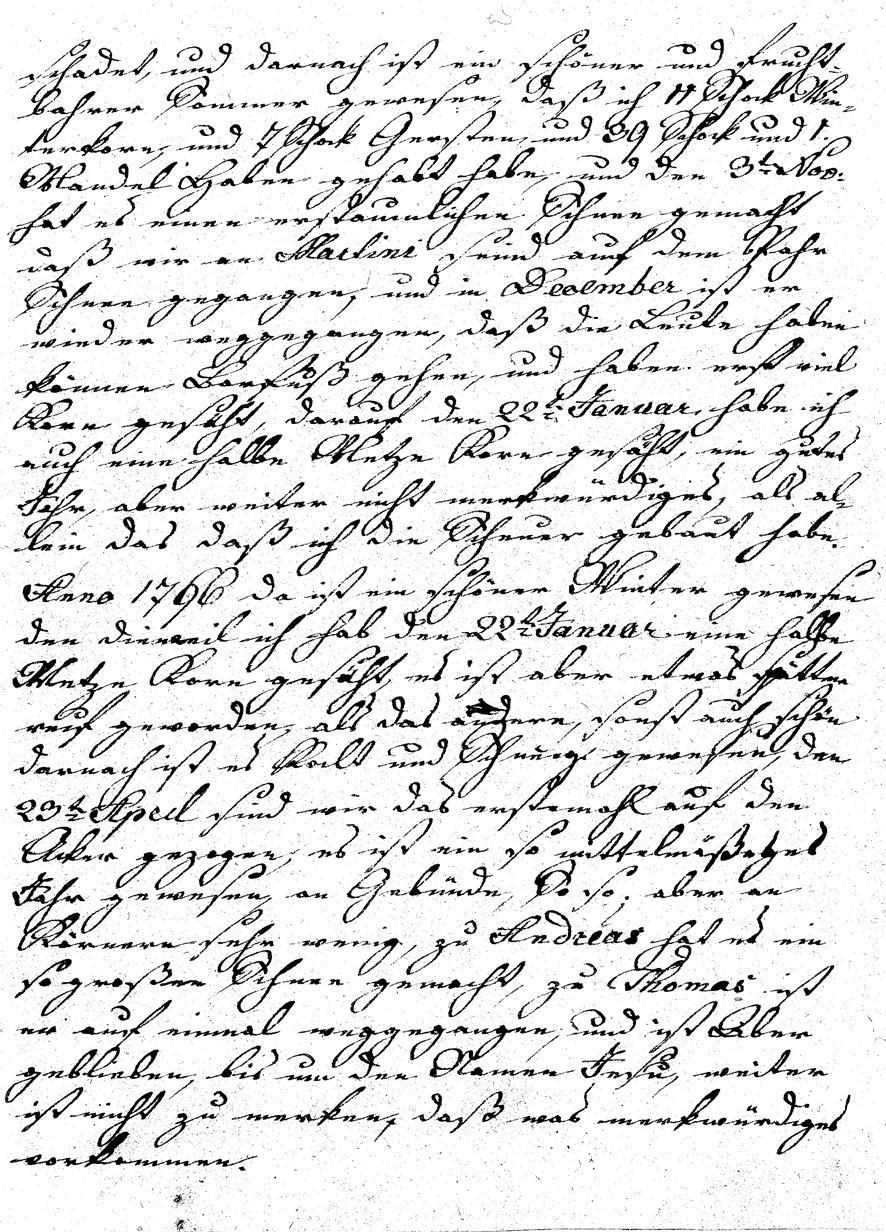 schadet, und darnach ist ein schöner und frucht-
bahrer Sommer gewesen, daß ich 11 Schock Win-
terkorn, und 7 Schock Gersten, und 39 Schock und 1.
Mandel Haber gehabt habe, und den 3t. Nov:
hat es einen erstaunlichen Schnee gemacht
daß wir an Martini seind auf dem
Schnee gegangen, und in December ist er
wieder weggegangen, daß die Leute haben
können Barfuß gehen, und haben erst viel
Korn gesäht, darauf den 22t. Januar, habe ich
auch eine halbe Metze Korn gesäht, ein gutes
Jahr, aber weiter nicht merkwürdiges, als al-
lein das daß ich die Scheuer gebaut habe.
Anno 1796 da ist ein schöner Winter gewesen
den dieweil ich hab den 22t. Januar eine halbe
Metze Korn gesäht, es ist aber etwas spätter
reif geworden, als das andere, sonst auch schön
darnach ist es Kalt und Schneeig gewesen, den
23t. April sind wir das erstemahl auf den
Acker gezogen, es ist ein so mittelmäßiges
Jahr gewesen, an Gebünde, So so, aber an
Körnern sehr wenig, zu Andreas hat es ein
so großen Schnee gemacht, zu Thomas ist
er auf einmal weggegangen, und ist Aber
geblieben, bis um den Namen Jesu, weiter
ist nicht zu merken, daß was merkwürdiges
vorkommen.